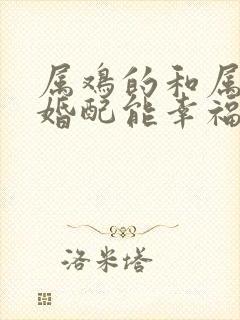 属鸡的和属
婚配能幸福
洛米塔